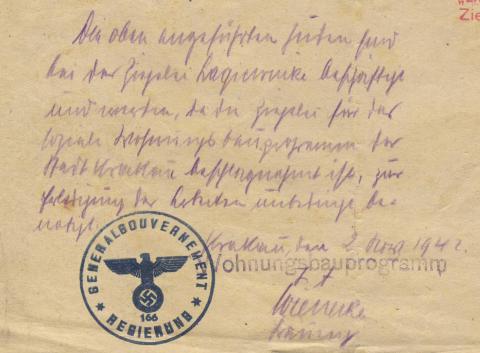 "
Zie
Die oben angeführten Juden sind
bei der Ziegelei Lagiewnicke beschäftigt
und werden, da die Ziegelei für das
soziale Wohnungsbauprogramm der
Stadt Krakau beschlagnahmt ist, zur
Erledigung der Arbeiten unbedingt be-
nötigt.
Krakau, den 2 Nov 1942.
Wohnungsbauprogramm
GENERALGOUVERNEMENT
REGIERUNG
166